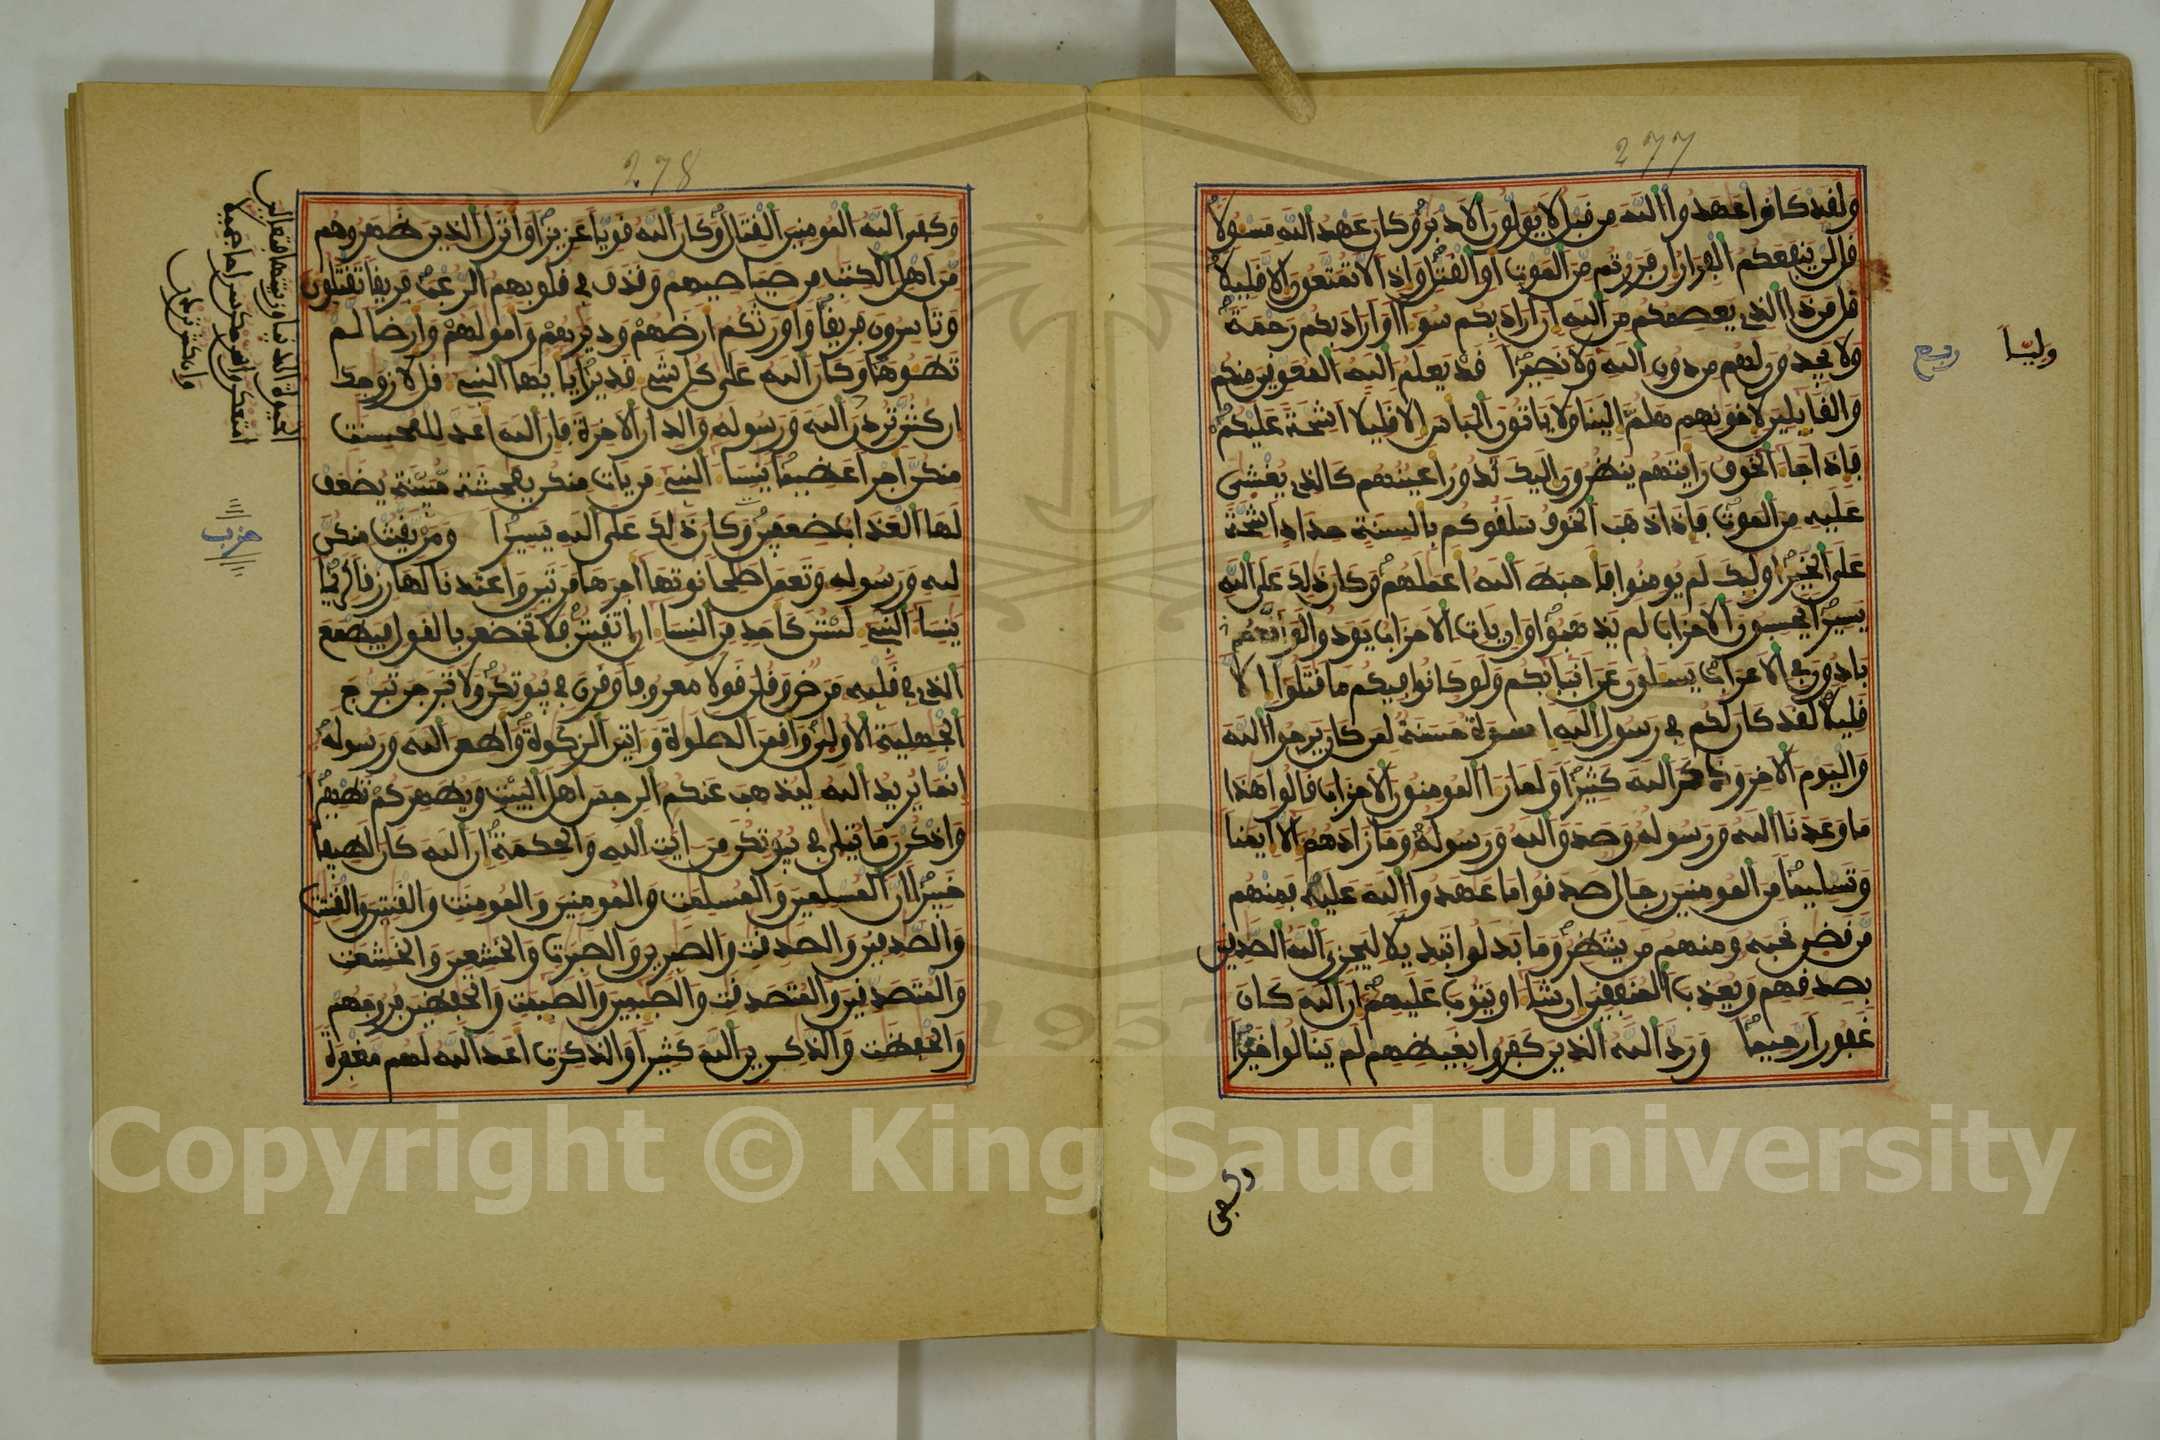 277
ولقد كانوا عهدوا الله من قبل لا يولون الادبر وكان عهد الله مسولا
قل لن ينفعكم الفرار ان فررتم من الموت او القتل واذا لا تمتعون الا قليلا
قل من ذا الذي يعصمكم من الله ان اراد بكم سوءا او اراد بكم رحمة
ولا يجدون لهم من دون الله ولا نصيرا قد يعلم الله المعوقين منكم
وليا
ربع
والقايلين لاخونهم هلم الينا ولا ياتون الباس الا قليلا اشحة عليكم
فاذا جا الخوف رايتهم ينظرون اليك تدور اعينهم كالذي يغشى
عليه من الموت فاذا ذهب الخوف سلقوكم بالسنة حداد اشحة
على الخير اوليك لم يومنوا فاحبط الله اعملهم وكان ذلك على الله
يسيرا يحسبون الاحزاب لم يذهبوا وان يات الاحزاب يودوا لو انهم
بادون في الاعراب يسلون عن انبايكم ولو كانوا فيكم ما قتلوا الا
قليلا لقد كان لكم في رسول الله اسوة حسنة لمن كان يرجوا الله
واليوم الاخر وذكر الله كثيرا ولما را المومنون الاحزاب قالوا هذا
ما وعدنا الله ورسوله وصدق الله ورسوله وما زادهم الا ايمنا
وتسليما من المومنين رجال صدقوا ما عهدوا الله عليه فمنهم
من قضى نحبه ومنهم من ينتظر وما بدلوا تبديلا ليجزي الله الصدقين
بصدقهم ويعذب المنفقين ان شا او يتوب عليهم ان الله كان
غفورا رحيما ورد الله الذين كفروا بغيظهم لم ينالوا خيرا
وكفى
278
وكفى الله المومنين القتال وكان الله قويا عزيزا وانزل الذين ظهروهم
من اهل الكتب من صياصيهم وقذف في قلوبهم الرعب فريقا تقتلون
وتاسرون فريقا واورثكم ارضهم وديرهم وامولهم وارضا لم
تطوها وكان الله على كل شي قديرا يايها النبي قل لازوجك
ان كنتن تردن الحيوة الدنيا وزينتها فتعالين
امتعكن واسرحكن سراحا جميلا
وان كنتن تردن
ان كنتن تردن الله ورسوله والدار الاخرة فان الله اعد للمحسنت
منكن اجرا عظيما ينسا النبي من يات منكن بفحشة مبينة يضعف
لها العذاب ضعفين وكان ذلك على الله يسيرا ومن يقنت منكن
حزب
لله ورسوله وتعمل صلحا نوتها اجرها مرتين واعتدنا لها رزقا كريما
ينسا النبي لستن كاحد من النسا ان اتقيتن فلا تخضعن بالقول فيطمع
الذي في قلبه مرض وقلن قولا معروفا وقرن في بيوتكن ولا تبرجن تبرج
الجهلية الاولى واقمن الصلوة واتين الزكوة واطعن الله ورسوله
انما يريد الله ليذهب عنكم الرجس اهل البيت ويطهركم تطهيرا
واذكرن ما يتلى في بيوتكن من ايت الله والحكمة ان الله كان لطيفا
خبيرا ان المسلمين والمسلمت والمومنين والمومنت والقنتين والقنتت
والصدقين والصدقت والصبرين والصبرت والخشعين والخشعت
والمتصدقين والمتصدقت والصيمين والصيمت والحفظين فروجهم
والحفظت والذكرين الله كثيرا والذكرت اعد الله لهم مغفرة
1957
Copyright © King Saud University